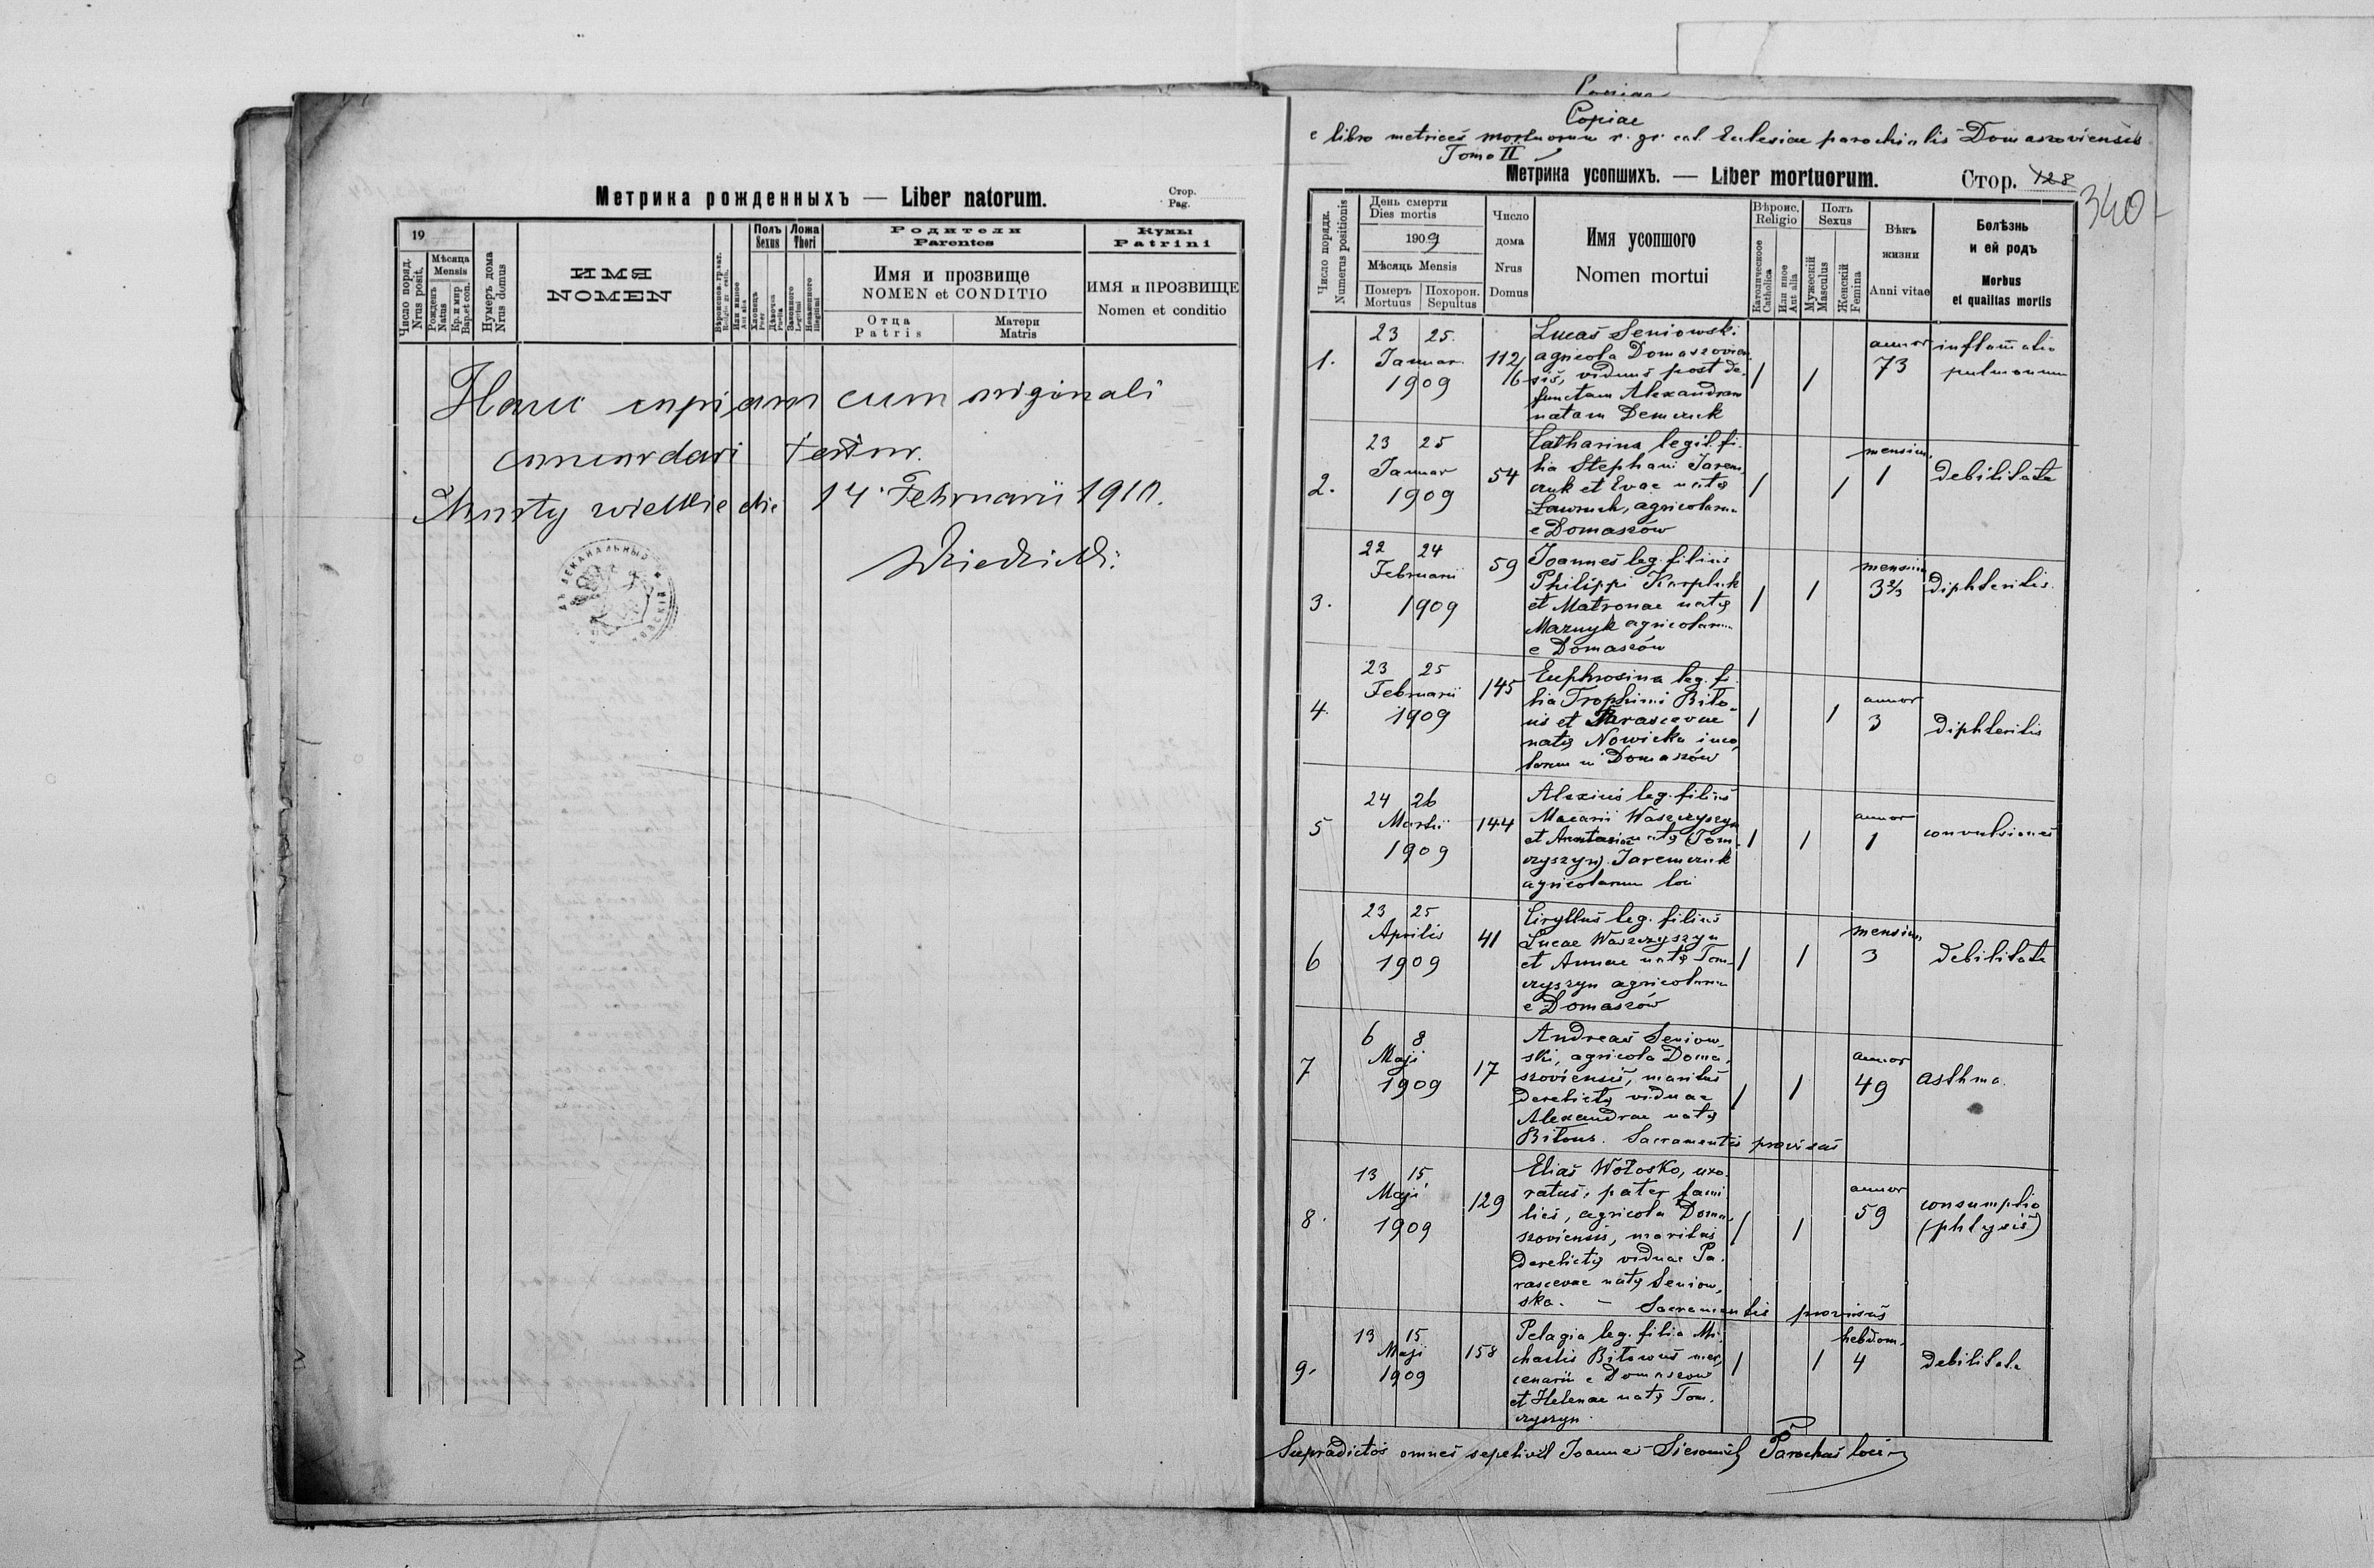 Метрика рожденныхъ — Liber natorum.
Стор.
Pag.
19
Число поряд.
Nrus posit.
Мѣсяца
Mensis
Рожденъ
Natus
Кр. и мир
Bap. et con.
Нумеръ дома
Nrus domus
ИМЯ
NOMEN
Или инное
Aut alia
Полъ
Sexus
Хлопецъ
Puer
Дѣвочка
Puella
Ложа
Thori
Законного
Legitimi
Незаконного
Illegitimi
Родители
Parentes
Имя и прозвище
NOMEN et CONDITIO
Отца
Patris
Матери
Matris
Кумы
Patrini
ИМЯ и ПРОЗВИЩЕ
Nomen et conditio
Hanc copiam cum originali
concordari testor.
Mosty wielkie die 14 Februarii 1910.
Copiae
e libro metrices mortuorum r. gr. cat. Eclesiae parochialis Domaszoviensis
Tomo II
Метрика усопшихъ. — Liber mortuorum.
Стор. 128
340
Число порядк.
Numerus positionis
День смерти
Dies mortis
1909
Мѣсяць Mensis
Померъ
Mortuus
Похорон.
Sepultus
Число
дома
Nrus
Domus
Имя усопшого
Nomen mortui
Вѣроис.
Religio
Католическое
Catholica
Или иное
Aut alia
Полъ
Sexus
Мужескій
Masculus
Женскій
Femina
Вѣкъ
жизни
Anni vitae
Болѣзнь
и ей родъ
Morbus
et qualitas mortis
1.
23 25.
Januar.
1909
112/
16
Lucas Seniowski
agricola Domaszovien
sis, viduus post de-
functam Alexandram
natam Demczuk
1 1
annor
73
inflamatio
pulmonum
2.
23 25
Januar
1909
54
Catharina legit. fi-
lia Stephani Jarem
czuk et Evae natę
Ławruch, agricolarum
e Domaszów
1 1
mensium
1
debilitate
3.
22 24
Februarii
1909
59
Joannes leg. filius
Philippi Karpluk
et Matronae natę
Maznyk agricolarum
e Domaszów
1 1
mensium
3 2/3
diphteritis.
4.
23 25
Februarii
1909
145
Euphrosina leg. fi
lia Trophimi Biło-
us et Parascevae
natę Nowicka inco
larum in Domaszów
1 1
annor
3
diphteritis
5
24 26
Martii
1909
144
Alexius leg. filius
Macarii Waszczyszyn
et Anastasiae natę (Tom-
czyszyn) Jaremczuk
agricolarum loci
1 1
annor
1
convulsiones
6
23 25
Aprilis
1909
41
Cirylus leg. filius
Lucae Waszczyszyn
et Annae natę Tom-
czyszyn agricolarum
e Domaszów
1 1
mensium
3
debilitate
7
6 8
Maji
1909
17
Andreas Seniow-
ski, agricola Doma-
szoviensis, maritus
derelictę viduae
Alexandrae natę
Biłous. Sacramentis provisus
1 1
annor
49
asthma.
8.
13 15
Maji
1909
129
Elias Wołosko, uxo-
ratus, pater fami
lies, agricola Doma-
szoviensis, maritus
derelictę viduae Pa-
rascevae natę Seniow-
ska. — Sacramentis provisus
1 1
annor
59
consumptio
(phtysis)
9.
13 15
Maji
1909
158
Pelagia leg. filia Mi-
chaelis Biłous mer-
cenarii e Domaszów
et Helenae natę Tom-
czyszyn.
1 1
hebdom.
4
debilitate
Supradictos omnes sepelivit Joannes Parochus loci